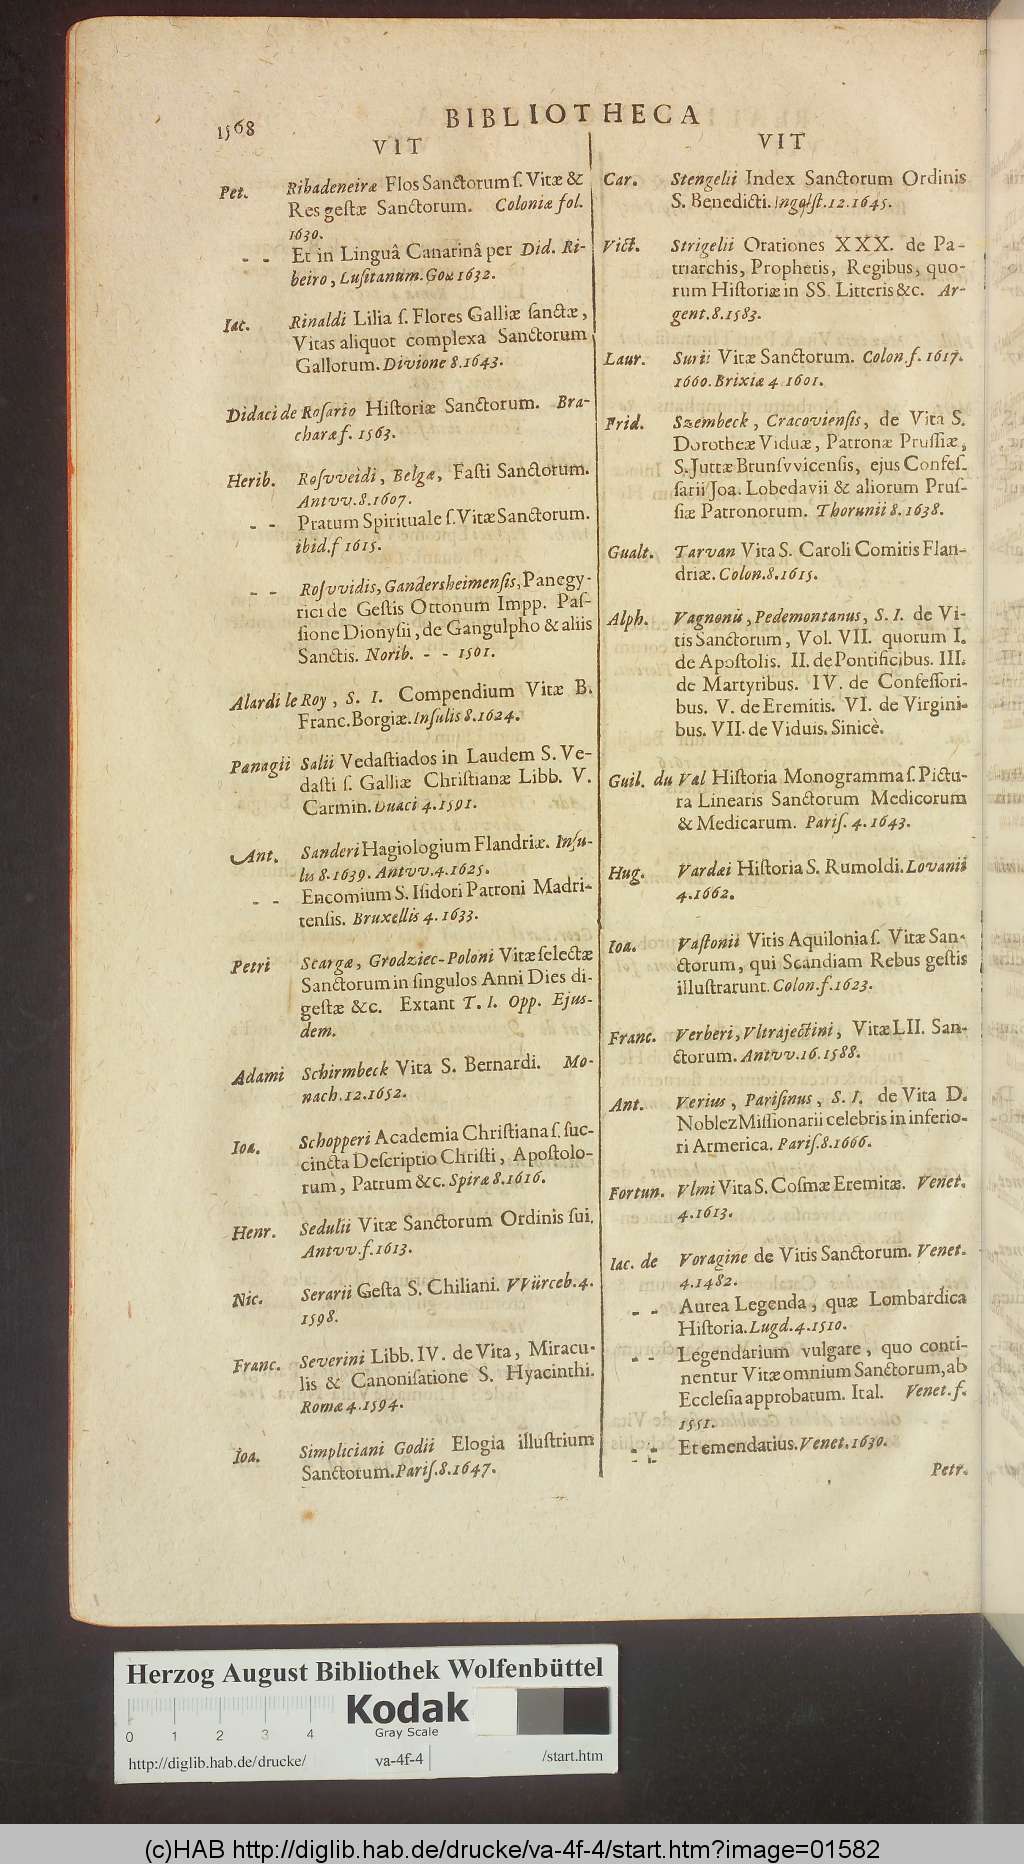 1568
BIBLIOTHECA
VIT
Pet. Ribadeneiræ Flos Sanctorum ſ. Vitæ &
Res geſtæ Sanctorum. Coloniæ fol.
1630.
- - Et in Linguâ Canarinâ per Did. Ri-
beiro, Luſitanum. Goæ 1632.
Iac. Rinaldi Lilia ſ. Flores Galliæ ſanctæ,
Vitas aliquot complexa Sanctorum
Gallorum. Divione 8. 1643.
Didaci de Roſario Hiſtoriæ Sanctorum. Bra-
charæ f. 1563.
Herib. Roſvveidi, Belgæ, Faſti Sanctorum.
Antvv. 8. 1607.
- - Pratum Spirituale ſ. Vitæ Sanctorum.
ibid. f 1615.
- - Roſvvidis, Gandersheimenſis, Panegy-
rici de Geſtis Ottonum Impp. Paſ-
ſione Dionyſii, de Gangulpho & aliis
Sanctis. Norib. - - 1501.
Alardi le Roy, S. I. Compendium Vitæ B.
Franc. Borgiæ. Inſulis 8. 1624.
Panagii Salii Vedaſtiados in Laudem S. Ve-
daſti ſ. Galliæ Chriſtianæ Libb. V.
Carmin. Duaci 4. 1591.
Ant. Sanderi Hagiologium Flandriæ. Inſu-
lis 8. 1639. Antvv. 4. 1625.
- - Encomium S. Iſidori Patroni Madri-
tenſis. Bruxellis 4. 1633.
Petri Scargæ, Grodziec-Poloni Vitæ ſelectæ
Sanctorum in ſingulos Anni Dies di-
geſtæ &c. Extant T. I. Opp. Ejus-
dem.
Adami Schirmbeck Vita S. Bernardi. Mo-
nach. 12. 1652.
Ioa. Schopperi Academia Chriſtiana ſ. ſuc-
cincta Deſcriptio Chriſti, Apoſtolo-
rum, Patrum &c. Spiræ 8. 1616.
Henr. Sedulii Vitæ Sanctorum Ordinis ſui.
Antvv. f. 1613.
Nic. Serarii Geſta S. Chiliani. VVürceb. 4.
1598.
Franc. Severini Libb. IV. de Vita, Miracu-
lis & Canoniſatione S. Hyacinthi.
Romæ 4. 1594.
Ioa. Simpliciani Godii Elogia illuſtrium
Sanctorum. Pariſ. 8. 1647.
VIT
Car. Stengelii Index Sanctorum Ordinis
S. Benedicti. Ingolſt. 12. 1645.
Vict. Strigelii Orationes XXX. de Pa-
triarchis, Prophetis, Regibus, quo-
rum Hiſtoriæ in SS. Litteris &c. Ar-
gent. 8. 1583.
Laur. Surii Vitæ Sanctorum. Colon. f. 1617.
1660. Brixiæ 4 1601.
Frid. Szembeck, Cracovienſis, de Vita S.
Dorotheæ Viduæ, Patronæ Pruſſiæ,
S. Juttæ Brunſvvicenſis, ejus Confeſ-
ſarii Joa. Lobedavii & aliorum Pruſ-
ſiæ Patronorum. Thorunii 8. 1638.
Gualt. Tarvan Vita S. Caroli Comitis Flan-
driæ. Colon. 8. 1615.
Alph. Vagnonii, Pedemontanus, S. I. de Vi-
tis Sanctorum, Vol. VII. quorum I.
de Apoſtolis. II. de Pontificibus. III.
de Martyribus. IV. de Confeſſori-
bus. V. de Eremitis. VI. de Virgini-
bus. VII. de Viduis. Sinicè.
Guil. du Val Hiſtoria Monogramma ſ. Pictu-
ra Linearis Sanctorum Medicorum
& Medicarum. Pariſ. 4. 1643.
Hug. Vardæi Hiſtoria S. Rumoldi. Lovanii
4. 1662.
Ioa. Vaſtonii Vitis Aquilonia ſ. Vitæ San-
ctorum, qui Scandiam Rebus geſtis
illuſtrarunt. Colon. f. 1623.
Franc. Verberi, Vltrajectini, Vitæ LII. San-
ctorum. Antvv. 16. 1588.
Ant. Verius, Pariſinus, S. I. de Vita D.
Noblez Miſſionarii celebris in inferio-
ri Armerica. Pariſ. 8. 1666.
Fortun. Vlmi Vita S. Coſmæ Eremitæ. Venet.
4. 1613.
Iac. de Voragine de Vitis Sanctorum. Venet.
4. 1482.
- - Aurea Legenda, quæ Lombardica
Hiſtoria. Lugd. 4. 1510.
- - Legendarium vulgare, quo conti-
nentur Vitæ omnium Sanctorum, ab
Ecclesia approbatum. Ital. Venet. f.
1551.
- - Et emendatius. Venet. 1630.
Petr.
Herzog August Bibliothek Wolfenbüttel
Kodak
Gray Scale
0 1 2 3 4
http://diglib.hab.de/drucke/ va-4f-4 /start.htm
(c)HAB http://diglib.hab.de/drucke/va-4f-4/start.htm?image=01582